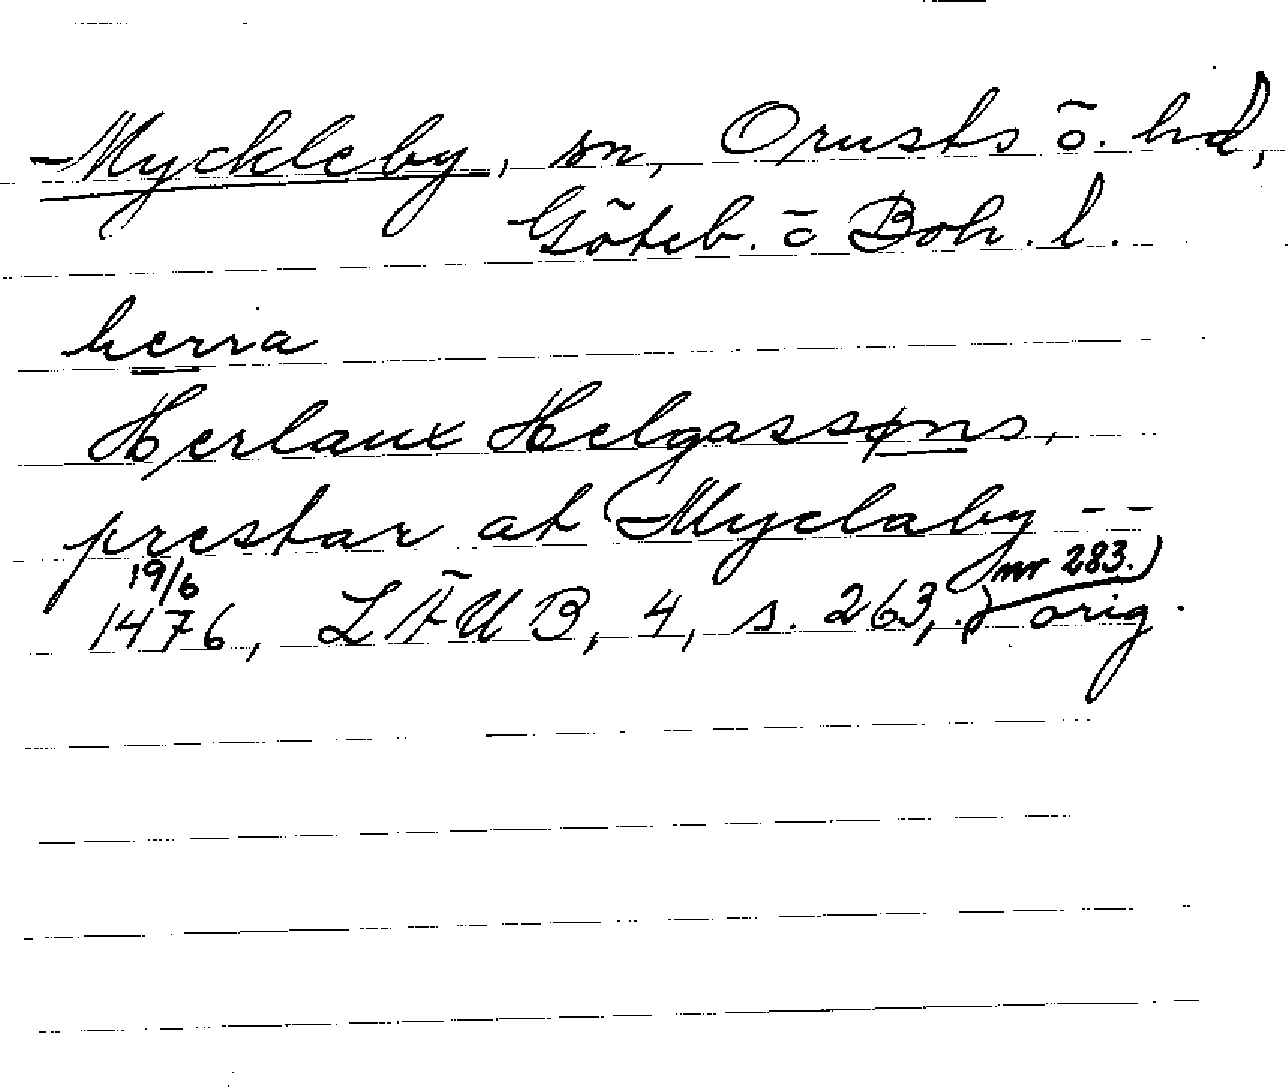 Myckleby, sn, Orusts ö. hd,
Göteb. o Boh. l.
herra
Herlaux Helgassøns,
prestar at Myclaby --
19/6 1476, LÄUB, 4, s. 263, nr 283.) orig.